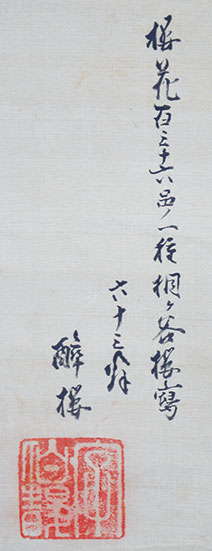 櫻花百三十六品ノ一種桐ヶ谷櫻寫
六十三齢
醉櫻